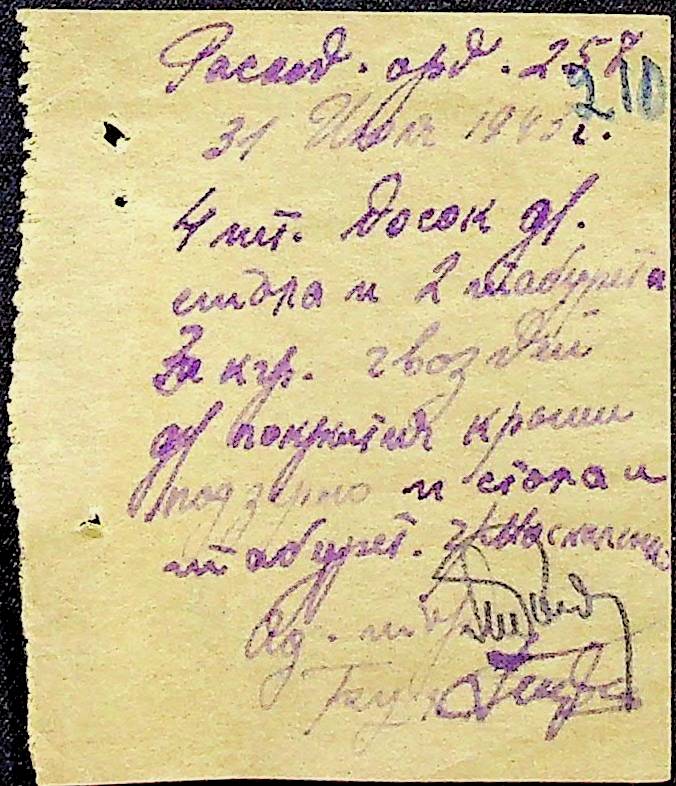 Расход. орд. 258
210
31 Июля 1945 г.
4 шт. досок дл.
стола и 2 табурета
3 кгр. гвоздей
дл покрытия крыши
под зерно и стола и
табурет.